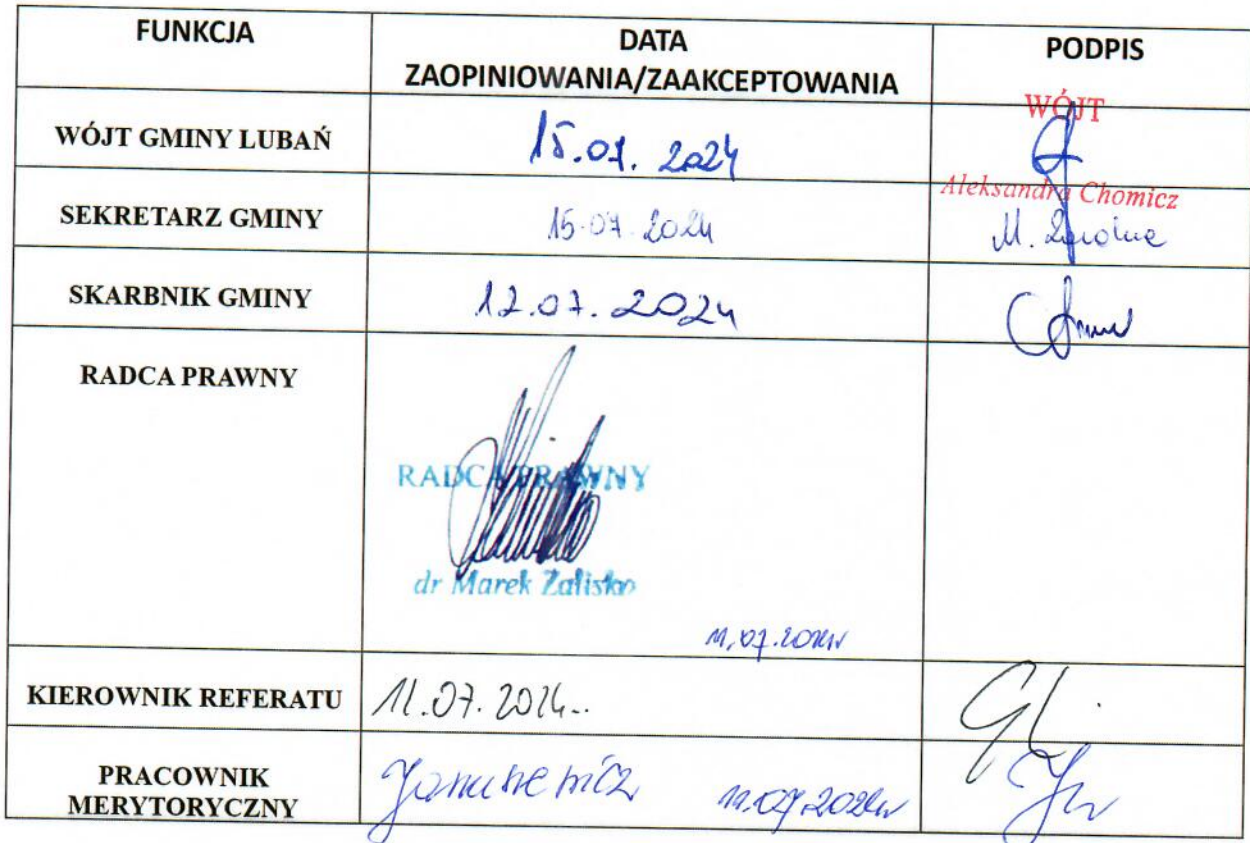 FUNKCJA
DATA
ZAOPINIOWANIA/ZAAKCEPTOWANIA
PODPIS
WÓJT GMINY LUBAŃ
15.07.2024
WÓJT
Aleksandra Chomicz
SEKRETARZ GMINY
15.07.2024
M.
SKARBNIK GMINY
12.07.2024
RADCA PRAWNY
RADCA PRAWNY
dr Marek Zalisko
11.07.2024r
KIEROWNIK REFERATU
11.07.2024..
PRACOWNIK
MERYTORYCZNY
11.07.2024r